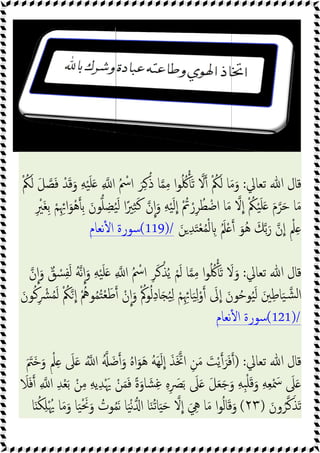 اتخاذ الهوي وطاعته عبادة وشرك بالله
قال الله تعالي: وَمَا لَكُمْ أَلَّا تَأْكُلُوا مِمَّا ذُكِرَ اسْمُ اللَّهِ عَلَيْهِ وَقَدْ فَصَّلَ لَكُمْ
مَا حَرَّمَ عَلَيْكُمْ إِلَّا مَا اضْطُرِرْتُمْ إِلَيْهِ وَإِنَّ كَثِيرًا لَيُضِلُّونَ بِأَهْوَائِهِمْ بِغَيْرِ
عِلْمٍ إِنَّ رَبَّكَ هُوَ أَعْلَمُ بِالْمُعْتَدِينَ /(119)سورة الأنعام
قال الله تعالي: وَلَا تَأْكُلُوا مِمَّا لَمْ يُذْكَرِ اسْمُ اللَّهِ عَلَيْهِ وَإِنَّهُ لَفِسْقٌ وَإِنَّ
الشَّيَاطِينَ لَيُوحُونَ إِلَى أَوْلِيَائِهِمْ لِيُجَادِلُوكُمْ وَإِنْ أَطَعْتُمُوهُمْ إِنَّكُمْ لَمُشْرِكُونَ
/(121)سورة الأنعام
قال الله تعالي: (أَفَرَأَيْتَ مَنِ اتَّخَذَ إِلَهَهُ هَوَاهُ وَأَضَلَّهُ اللَّهُ عَلَى عِلْمٍ وَخَتَمَ
عَلَى سَمْعِهِ وَقَلْبِهِ وَجَعَلَ عَلَى بَصَرِهِ غِشَاوَةً فَمَنْ يَهْدِيهِ مِنْ بَعْدِ اللَّهِ أَفَلَا
تَذَكَّرُونَ (٢٣) وَقَالُوا مَا هِيَ إِلَّا حَيَاتُنَا الدُّنْيَا نَمُوتُ وَنَحْيَا وَمَا يُهْلِكُنَا